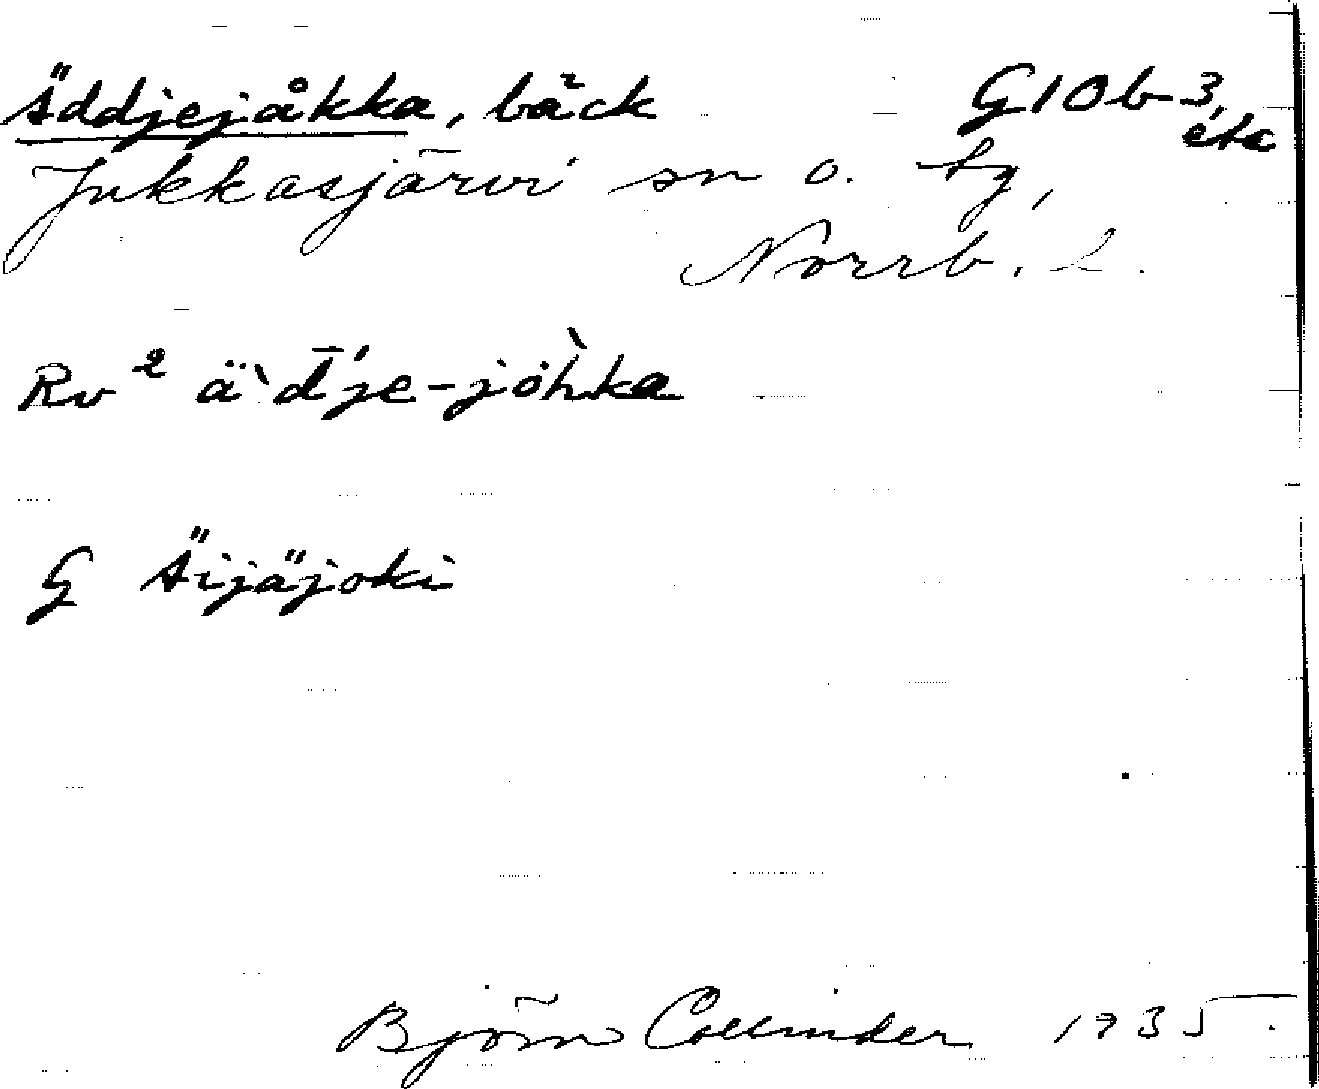 Äddjejåkka, bäck G10b-3, etc
Jukkasjärvi sn o. tg,
Norrb. l.
Rv² ä`d̄'je-jòh̀ka
G Äijäjoki
Björn Collinder 1935.